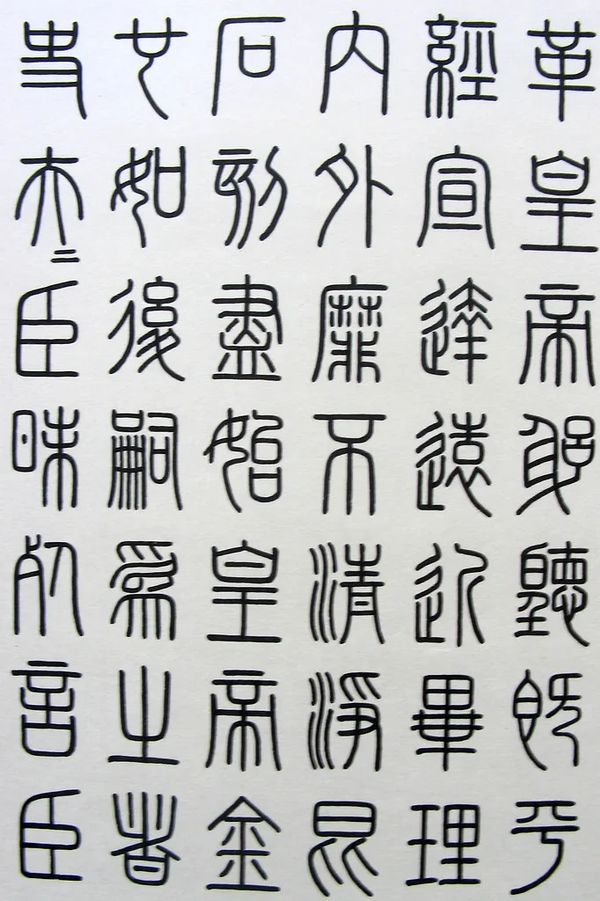 革皇帝躬聽既平
經宣達遠近畢理
內外靡不清淨昆
石刻盡始皇帝金
也如後嗣爲之者
史夫二臣昧死言臣